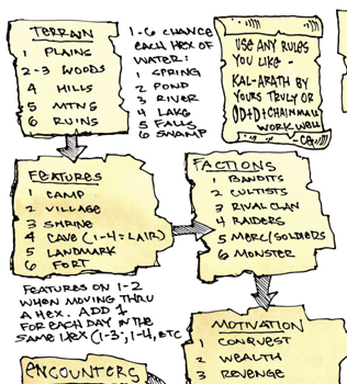 TERRAIN
1 PLAINS
2-3 WOODS
4 HILLS
5 MTNS
6 RUINS
1-6 CHANCE
EACH HEX OF
WATER:
1 SPRING
2 POND
3 RIVER
4 LAKE
5 FALLS
6 SWAMP
USE ANY RULES
YOU LIKE -
KAL-ARATH BY
YOURS TRULY OR
OD+D+CHAINMAIL
WORK WELL
FEATURES
1 CAMP
2 VILLAGE
3 SHRINE
4 CAVE (1-4=LAIR)
5 LANDMARK
6 FORT
FACTIONS
1 BANDITS
2 CULTISTS
3 RIVAL CLAN
4 RAIDERS
5 MERC/SOLDIERS
6 MONSTER
FEATURES ON 1-2
WHEN MOVING THRU
A HEX. ADD 1
FOR EACH DAY IN THE
SAME HEX (1-3, 1-4, ETC
MOTIVATION
1 CONQUEST
2 WEALTH
3 REVENGE
ENCOUNTERS